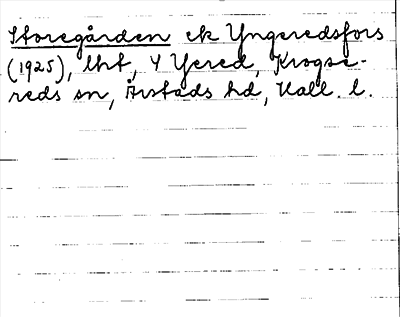 Storegården ek Yngeredsfors
(1925), lht, Y Yered, Krogse-
reds sn, Årstads hd, Hall. l.